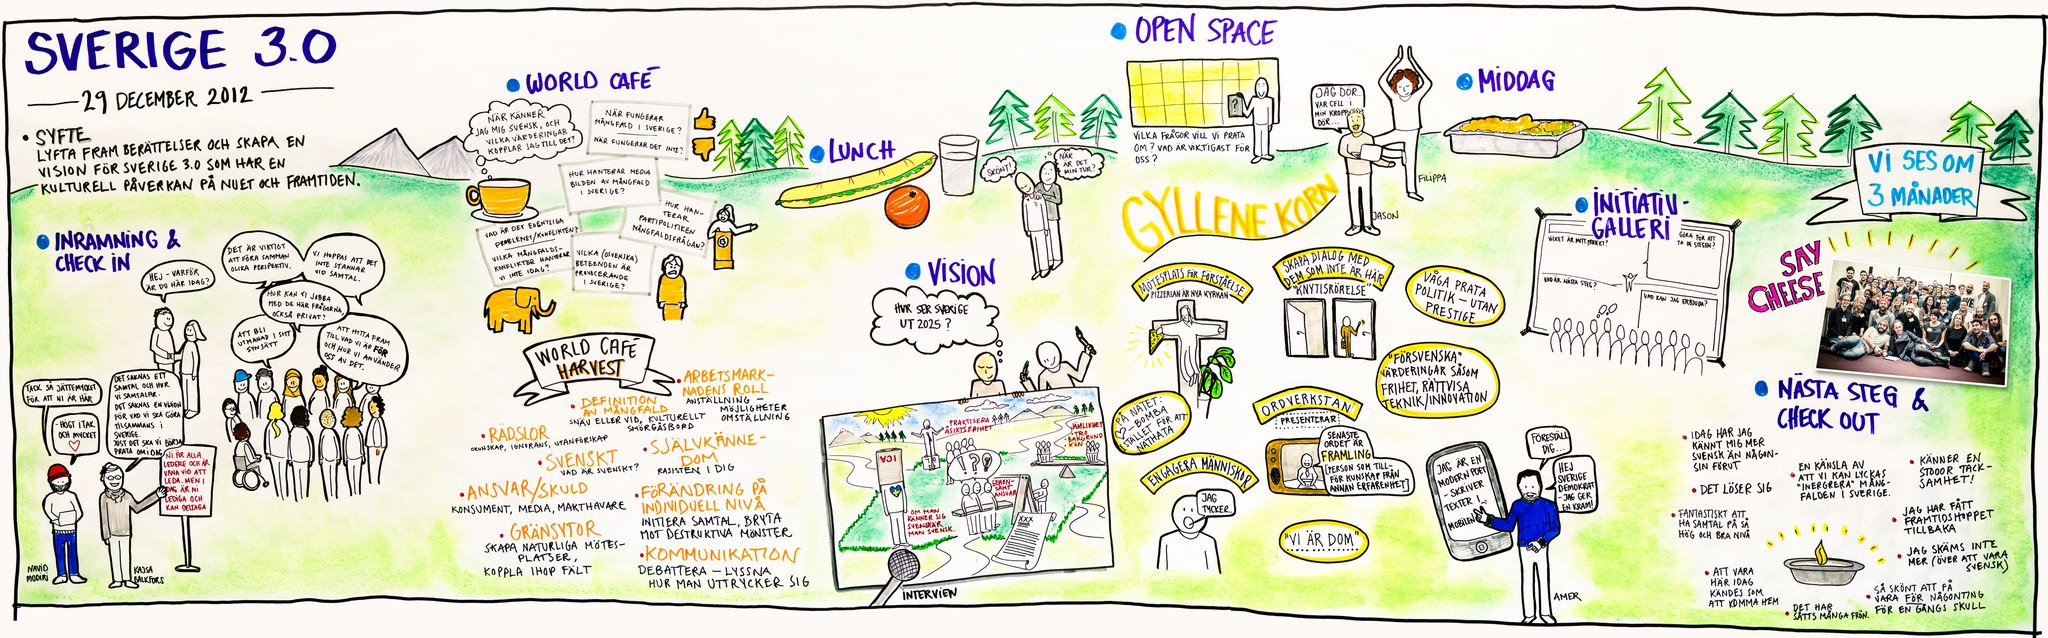 SVERIGE 3.0
29 DECEMBER 2012
• SYFTE
LYFTA FRAM BERÄTTELSER OCH SKAPA EN
VISION FÖR SVERIGE 3.0 SOM HAR EN
KULTURELL PÅVERKAN PÅ NUET OCH FRAMTIDEN.
INRAMNING &
CHECK IN
HEJ - VARFÖR
ÄR DU HÄR IDAG?
DET ÄR VIKTIGT
ATT FÖRA SAMMAN
OLIKA PERSPEKTIV.
VI HOPPAS ATT DET
INTE STANNAR
VID SAMTAL.
HUR KAN VI JOBBA
MED DE HÄR FRÅGORNA,
OCKSÅ PRIVAT?
ATT BLI
UTMANAD I SITT
SYNSÄTT
ATT HITTA FRAM
TILL VAD VI ÄR FÖR
OCH HUR VI ANVÄNDER
OSS AV DET.
TACK SÅ JÄTTEMYCKET
FÖR ATT NI ÄR HÄR
HÖGT I TAK
OCH MYCKET
DET SAKNAS ETT
SAMTAL OCH HUR
VI SAMTALAR.
DET SAKNAS EN VISION
FÖR VAD VI SKA GÖRA
TILLSAMMANS I
SVERIGE.
JUST DET SKA VI BÖRJA
PRATA OM IDAG
NI ÄR ALLA
LEDARE OCH ÄR
VANA VID ATT
LEDA. MEN I
DAG ÄR NI
LEDIGA OCH
KAN DELTAGA
NAVID
MODIRI
KAJSA
BALKFORS
WORLD CAFÉ
NÄR KÄNNER
JAG MIG SVENSK, OCH
VILKA VÄRDERINGAR
KOPPLAR JAG TILL DET?
NÄR FUNGERAR
MÅNGFALD I SVERIGE?
NÄR FUNGERAR DET INTE?
HUR HANTERAR MEDIA
BILDEN AV MÅNGFALD
I SVERIGE?
HUR HAN-
TERAR
PARTIPOLITIKEN
MÅNGFALDSFRÅGAN?
VAD ÄR DET EGENTLIGA
PROBLEMET/KONFLIKTEN?
VILKA MÅNGFALDS-
KONFLIKTER HANTERAR
VI INTE IDAG?
VILKA (OSVENSKA)
BETEENDEN ÄR
PROVOCERANDE
I SVERIGE?
WORLD CAFÉ
HARVEST
• ARBETSMARK-
NADENS ROLL
ANSTÄLLNING - MÖJLIGHETER
OMSTÄLLNING
• DEFINITION
AV MÅNGFALD
SNÄV ELLER VID, KULTURELLT
SMÖRGÅSBORD
• RÄDSLOR
OKUNSKAP, IGNORANS, UTANFÖRSKAP
• SVENSKT
VAD ÄR SVENSKT?
• SJÄLVKÄNNE-
DOM
RASISTEN I DIG
• ANSVAR/SKULD
KONSUMENT, MEDIA, MAKTHAVARE
• FÖRÄNDRING PÅ
INDIVIDUELL NIVÅ
INITIERA SAMTAL, BRYTA
MOT DESTRUKTIVA MÖNSTER
• GRÄNSYTOR
SKAPA NATURLIGA MÖTES-
PLATSER,
KOPPLA IHOP FÄLT
• KOMMUNIKATION
DEBATTERA - LYSSNA
HUR MAN UTTRYCKER SIG
LUNCH
SKÖNT!
NÄR
ÄR DET
MIN TUR?
VISION
HUR SER SVERIGE
UT 2025?
PRAKTISERA
ÅSIKTSFRIHET
JÄMLIKHET
TRO
BAKGRUND
KÖN
ICA
GEMEN-
SAMT
ANSVAR
OM MAN
KÄNNER SIG
SVENSK ÄR
MAN SVENSK.
XXX
INTERVIEW
OPEN SPACE
VILKA FRÅGOR VILL VI PRATA
OM? VAD ÄR VIKTIGAST FÖR
OSS?
JAG DÖR..
VAR CELL I
MIN KROPP
DÖR...
FILIPPA
JASON
GYLLENE KORN
MÖTESPLATS FÖR FÖRSTÅELSE
PIZZERIAN ÄR NYA KYRKAN
SKAPA DIALOG MED
DEM SOM INTE ÄR HÄR
"KNYTISRÖRELSE"
VÅGA PRATA
POLITIK - UTAN
PRESTIGE
"FÖRSVENSKA"
VÄRDERINGAR SÅSOM
FRIHET, RÄTTVISA
TEKNIK/INNOVATION
PÅ NÄTET:
BOMBA
STÄLLET FÖR ATT
NÄTHATA
ORDVERKSTAN
PRESENTERAR:
SENASTE
ORDET ÄR
FRÄMLING
(PERSON SOM TILL-
FÖR KUNSKAP FRÅN
ANNAN ERFARENHET)
ENGAGERA MÄNNISKOR
JAG
TYCKER
"VI ÄR DOM"
JAG ÄR EN
MODERN POET
- SKRIVER
TEXTER I
MOBILEN
FÖRESTÄLL
DIG...
HEJ
SVERIGE
DEMOKRAT
- JAG GER
EN KRAM!
AMER
MIDDAG
INITIATIV-
GALLERI
VILKET ÄR MITT PROJEKT?
GÖRA FÖR ATT
TA DE STEGEN?
VAD ÄR NÄSTA STEG?
VAD KAN JAG ERBJUDA?
VI SES OM
3 MÅNADER
SAY
CHEESE
NÄSTA STEG &
CHECK OUT
• IDAG HAR JAG
KÄNNT MIG MER
SVENSK ÄN NÅGON-
SIN FÖRUT
• DET LÖSER SIG
• FANTASTISKT ATT
HA SAMTAL PÅ SÅ
HÖG OCH BRA NIVÅ
• ATT VARA
HÄR IDAG
KÄNDES SOM
ATT KOMMA HEM
• EN KÄNSLA AV
ATT VI KAN LYCKAS
"INERGRERA" MÅNG-
FALDEN I SVERIGE.
• KÄNNER EN
STOOOR TACK-
SAMHET!
• JAG HAR FÅTT
FRAMTIDSHOPPET
TILLBAKA
• JAG SKÄMS INTE
MER (ÖVER ATT VARA
SVENSK)
• SÅ SKÖNT ATT FÅ
VARA FÖR NÅGONTING
FÖR EN GÅNGS SKULL
• DET HAR
SÅTTS MÅNGA FRÖN.